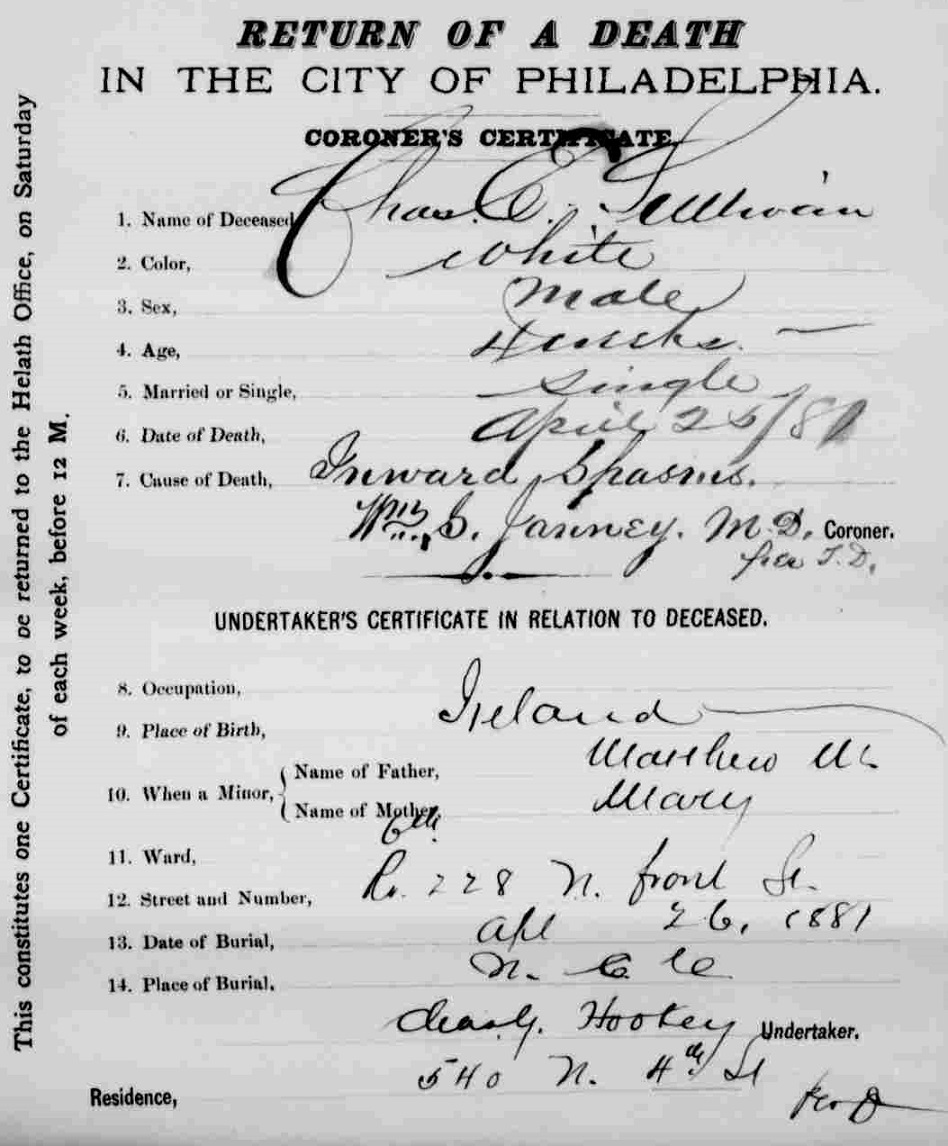 RETURN OF A DEATH
IN THE CITY OF PHILADELPHIA.
CORONER'S CERTIFICATE
1. Name of Deceased Chas. E. Sullivan
2. Color, White
3. Sex, Male
4. Age, 4 weeks.
5. Married or Single, Single
6. Date of Death, April 25/81
7. Cause of Death, Inward Spasms.
Wm. S. Janney. M.D. Coroner.
per T.D.
UNDERTAKER'S CERTIFICATE IN RELATION TO DECEASED.
8. Occupation,
9. Place of Birth, Ireland
10. When a Minor, Name of Father, Matthew
Name of Mother, Mary
11. Ward, 6th
12. Street and Number, Rr. 228 N. front St.
13. Date of Burial, Apl 26, 1881
14. Place of Burial. N.
Chas. G. Hookey Undertaker.
Residence, 540 N. 4th St
This constitutes one Certificate, to be returned to the Helath Office, on Saturday
of each week, before 12 M.